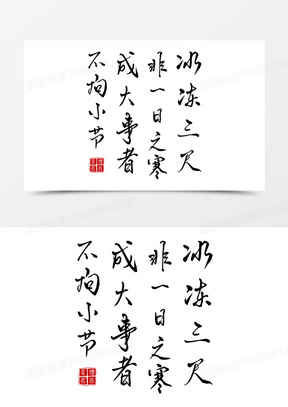 冰冻三尺
非一日之寒
成大事者
不拘小节
冰冻三尺
非一日之寒
成大事者
不拘小节